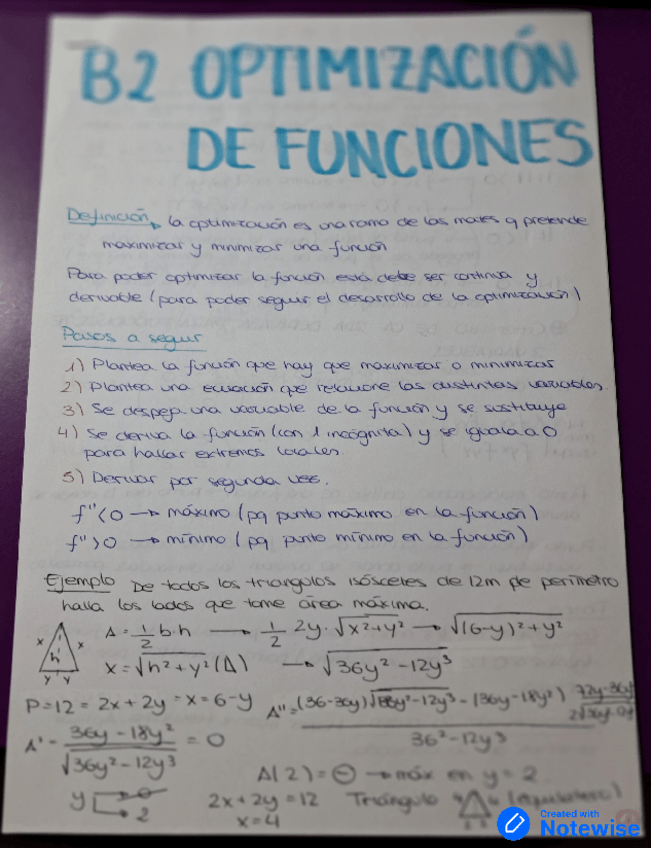 B2 OPTIMIZACIÓN
DE FUNCIONES
Definición → la optimización es una rama de las mates q pretende
maximizar y minimizar una función
Para poder optimizar la función está debe ser continua y
derivable (para poder seguir el desarrollo de la optimización)
Pasos a seguir
1) Plantea la función que hay que maximizar o minimizar
2) Plantea una ecuación que relacione las distintas variables.
3) Se despeja una variable de la función y se sustituye
4) Se deriva la función (con 1 incógnita) y se iguala a 0
para hallar extremos locales.
5) Derivar por segunda vez.
f''<0 → máximo (pq punto máximo en la función)
f''>0 → mínimo (pq punto mínimo en la función)
Ejemplo De todos los triangulos isósceles de 12m de perímetro
halla los lados que tome área máxima.
x x h y y
A = 1/2 b·h → 1/2 2y·√x²+y² → √(6-y)²+y²
x = √h²+y² (A) → √36y²-12y³
P=12 = 2x+2y = x = 6-y
A'' = (36-36y)√36y²-12y³ - (36y-18y²) 72y-36y²/2√36y²-12y³
36²-12y³
A' = 36y-18y²/√36y²-12y³ = 0
A(2) = ⊖ → máx en y = 2
y 0 2
2x+2y = 12 Triángulo 4 4 (equilatero)
x = 4
Created with
Notewise